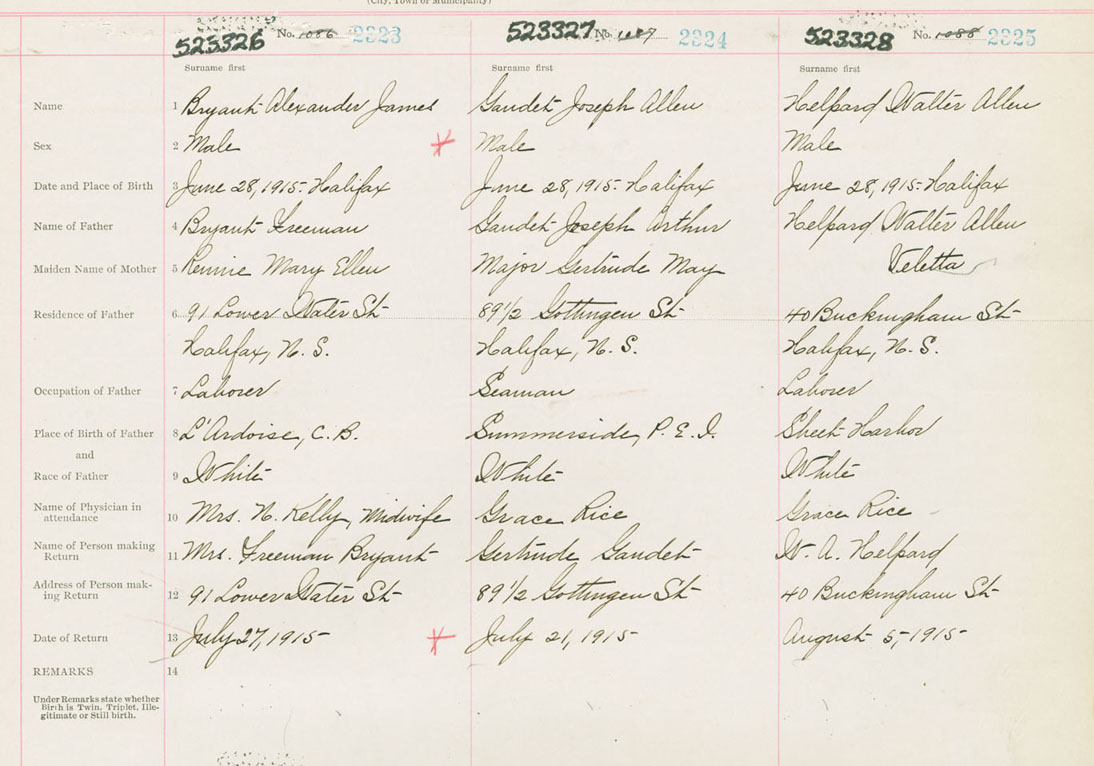 (City, Town or Municipality)
523326 No. 1086 2323 523327 No. 1087 2324 523328 No. 1088 2325
Surname first Surname first Surname first
Name 1 Bryant Alexander James Gaudet Joseph Allen Helpard Walter Allen
Sex 2 Male Male Male
Date and Place of Birth 3 June 28, 1915- Halifax June 28, 1915- Halifax June 28, 1915- Halifax
Name of Father 4 Bryant Freeman Gaudet Joseph Arthur Helpard Walter Allen
Maiden Name of Mother 5 Rennie Mary Ellen Major Gertrude May Veletta
Residence of Father 6 91 Lower Water St 89 1/2 Gottingen St 40 Buckingham St
Halifax, N. S. Halifax, N. S. Halifax, N. S.
Occupation of Father 7 Laborer Seaman Laborer
Place of Birth of Father 8 L'Ardoise, C. B. Summerside, P. E. I. Sheet Harbor
and
Race of Father 9 White White White
Name of Physician in
attendance 10 Mrs. N. Kelly, Midwife Grace Rice Grace Rice
Name of Person making
Return 11 Mrs. Freeman Bryant Gertrude Gaudet W. A. Helpard
Address of Person mak-
ing Return 12 91 Lower Water St 89 1/2 Gottingen St 40 Buckingham St
Date of Return 13 July 27, 1915 July 21, 1915 August 5, 1915
REMARKS 14
Under Remarks state whether
Birth is Twin, Triplet, Ille-
gitimate or Still birth.